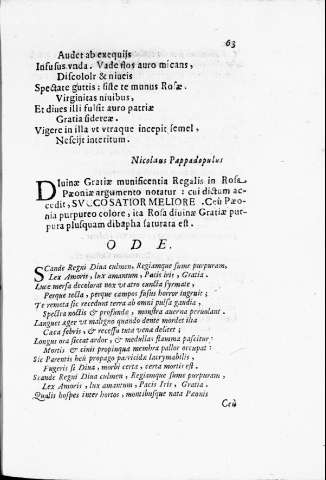 63
Audet ab exequijs
Infusus vnda. Vade flos auro micans,
Discolor & niueis
Spectate guttis: siste te munus Rosæ.
Virginitas niuibus,
Et diues illi fulsit auro patriæ
Gratia sidereæ.
Vigere in illa vt vtraque incepit semel,
Nescijt interitum.
Nicolaus Pappadopulus
Diuinæ Gratiæ munificentia Regalis in Rosa
Pæoniæ argumento notatur: cui dictum ac-
cedit, SVCCO SATIOR MELIORE. Ceù Pæo-
nia purpureo colore, ita Rosa diuinæ Gratiæ pur-
pura plusquam dibapha saturata est.
O D E.
Scande Regni Diua culmen, Regiamque sume purpuram,
Lex Amoris, lux amantum, Pacis iris, Gratia.
Luce mersa decolorat nox vt atro cuncta syrmate,
Perque tecta, perque campos fusus horror ingruit;
Te remota sic recedunt terra ab omni pulsa gaudia,
Spectra noctis & profundæ, monstra auerna peruolant.
Languet æger vt maligno quando dente mordet ilia
Cæca febris, & recessu tota vena deliret;
Longus ora siccat ardor, & medullas flamma pascitur;
Mortis & cinis propinquæ membra pallor occupat:
Sic Parentis heù propago parricidæ lacrymabilis,
Fugeris si Diua, morbi certa, certa mortis est.
Scande Regni Diua culmen, Regiamque sume purpuram,
Lex Amoris, lux amantum, Pacis Iris, Gratia.
Qualis hospes inter hortos, montibusque nata Pæonis
Ceù